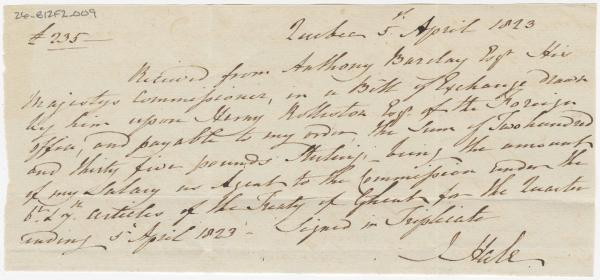 26-B12F2-009
£235 —
Quebec 5th April 1823
Received from Anthony Barclay Esqr His
Majestys Commissioner, in a Bill of Exchange drawn
by him upon Henry Rolleston Esqr. of the Foreign
office, and payable to my order the Sum of Two hundred
and thirty five pounds Sterling - being the amount
of my Salary as Agent to the Commission under the
6th & 7th articles of the Treaty of Ghent for the Quarter
ending 5th April 1823 - Signed in Triplicate
J Hale